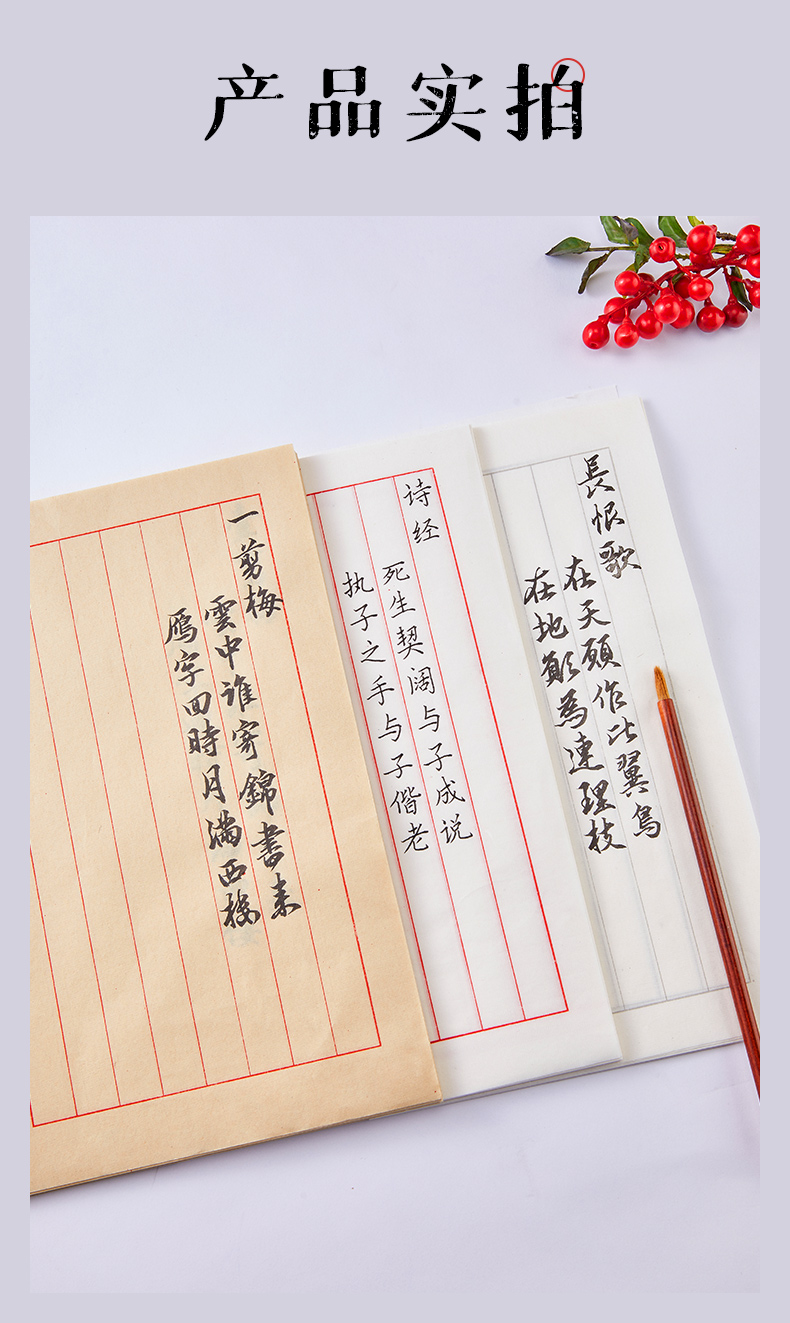 产品实拍
一剪梅
雲中谁寄錦書来
鴈字回時月满西楼
诗经
死生契阔与子成说
执子之手与子偕老
長恨歌
在天願作比翼鳥
在地願為連理枝